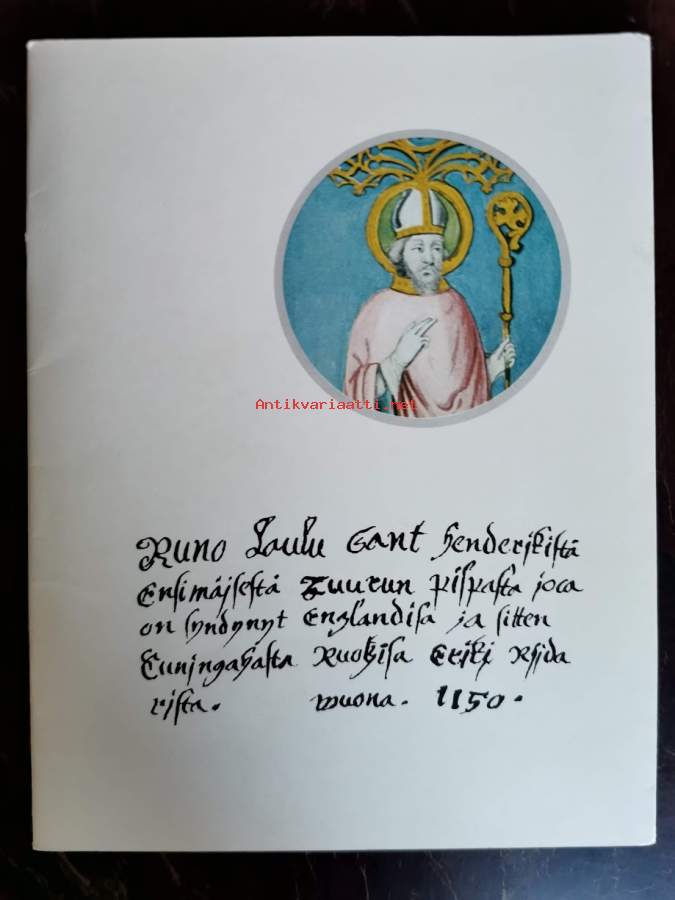 Antikvariaatti.net
Runo Laulu Sant henderjkistä
Ensimäjsestä Tuurun pispasta joca
on syndynyt Englandisa ja sitten
Cuningahasta Ruotzisa Erikj Rsida
rista. wuona. 1150.